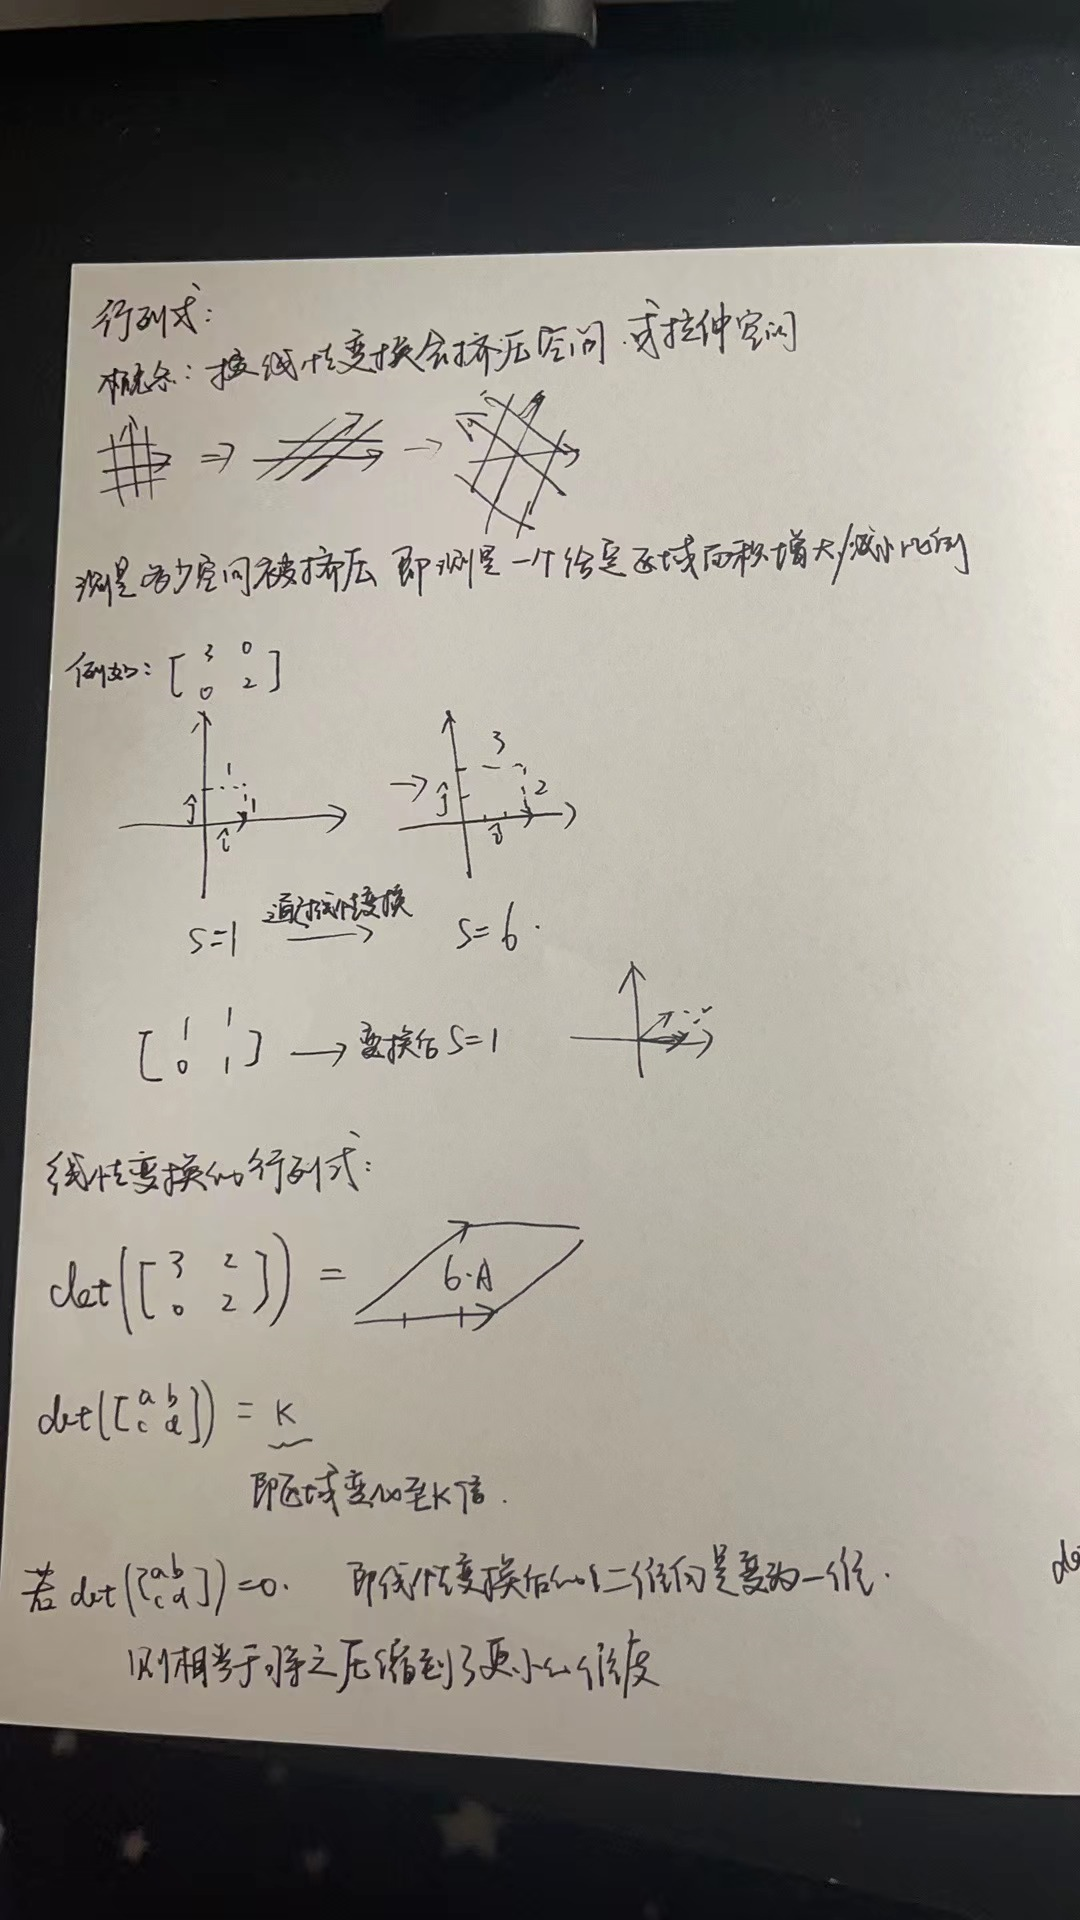 行列式:
概念: 线性变换会挤压空间.或拉伸空间
测量多少空间被挤压 即测量一个给定区域面积增大/减小比例
例如: [3 0
0 2]
1 3
ĵ 1 → ĵ 2
î î
S=1 通过线性变换 → S=6.
[1 1
0 1] → 变换后 S=1
线性变换的行列式:
det([3 2
0 2]) = 6·A
det([a b
c d]) = K
即区域变化至K倍.
若det([a b
c d])=0. 即线性变换后的二维向量变为一维.
则相当于将之压缩到了更小的维度